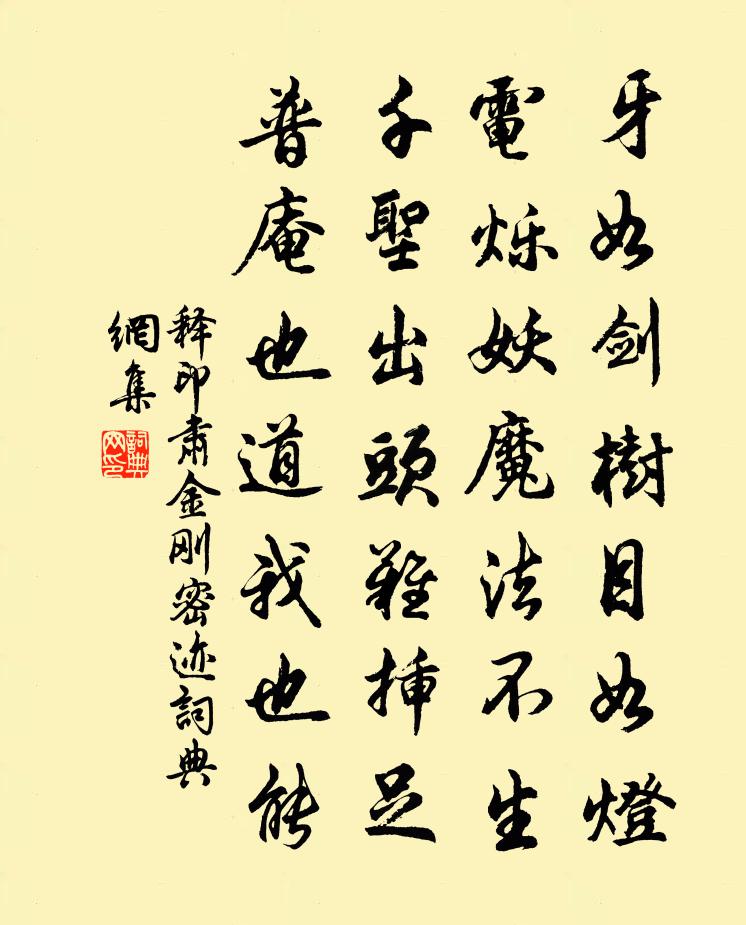 牙如劍樹目如燈
電烁妖魔法不生
千聖出頭難挿足
普庵也道我也能
释印肃金刚密迹詞典
網集
詞典
网印